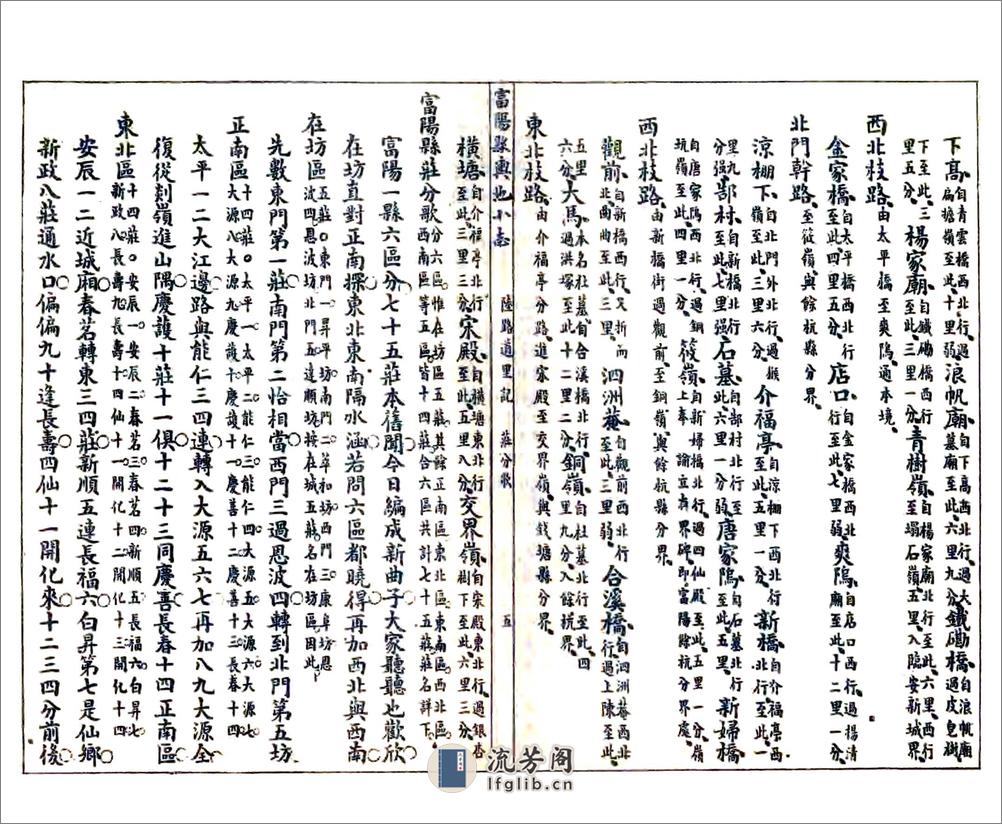 下高自青雲橋西北行過
下至此三扁擔嶺至此十里弱浪帆廟自下高西北行過大
墓廟至此六里九分鐵磡橋自浪帆廟
過皮皇樹
里五分楊家廟自鐵磡橋西行
至此三里一分青樹嶺自楊家廟北行至此六里西行
至塌石嶺五里入臨安新城界
西北枝路由太平橋至爽塢通本境
金家橋自太平橋西北行
至此四里五分店口自金家橋西北
行至此七里弱爽塢自店口西行過揚清
廟至此十二里一分
北門幹路至筱嶺與餘杭縣分界
涼棚下自北門外北行過
嶺至此三里六分介福亭自涼棚下西北行
至此五里一分新橋自介福亭西
北行至此一
里九分強郜村自新橋北行
至此七里強石墓自郜村北行至
此六里一分弱唐家塢自石墓北行
至此三里一分新婦橋
自唐家塢西北行過銅
坑嶺至此四里一分筱嶺自新婦橋北行過四仙殿至此五里一分嶺
上奉諭立有界碑即富陽餘杭分界處
西北枝路由新橋街過觀前至銅嶺與餘杭縣分界
觀前自新橋西行又折而
北曲曲至此三里泗洲菴自觀前西北行
至此三里弱合溪橋自泗洲菴西北
行過上陳至此
五里一分大馬本名杜墓自合溪橋北行
過洪塚至此十二里二分銅嶺自杜墓北行至此四
里九分入餘杭界
東北枝路由介福亭分路進宋殿至交界嶺與錢塘縣分界
橫塘自介福亭北行
至此三里三分宋殿自橫塘東北行
至此五里八分交界嶺自宋殿東北行過銀杏
樹下至此六里三分
富陽縣輿地小志 陸路道里記 莊分歌 五
富陽縣莊分歌分六區惟在坊區五莊其餘正南區東北區東南區西北區
西南區等五區皆十四莊合六區共計七十五莊莊名詳下
富陽一縣六區分七十五莊本舊聞今日編成新曲子大家聽聽也歡欣
在坊直對正南探東北東南隔水涵若問六區都曉得再加西北與西南
在坊區五莊○東門一昇平坊南門二萃和坊西門三康阜坊恩
波四恩波坊北門五達順坊按在城五莊名在坊區因此
先數東門第一莊南門第二怡相當西門三過恩波四轉到北門第五坊
正南區十四莊○太平一太平二能仁三能仁四大源五大源六大源七
大源八大源九慶護十慶護十一慶善十二慶善十三長春十四
太平一二大江邊路與能仁三四連轉入大源五六七再加八九大源全
復從剡嶺進山隅慶護十莊十一俱十二十三同慶善長春十四正南區
東北區十四莊○安辰一安辰二春茗三春茗四新順五長福六白昇七
新政八長壽九長壽十四仙十一開化十二開化十三開化十四
安辰一二近城廂春茗轉東三四莊新順五連長福六白昇第七是仙鄉
新政八莊通水口偏偏九十逢長壽四仙十一開化來十二三四分前後
流芳阁
lfglib.cn